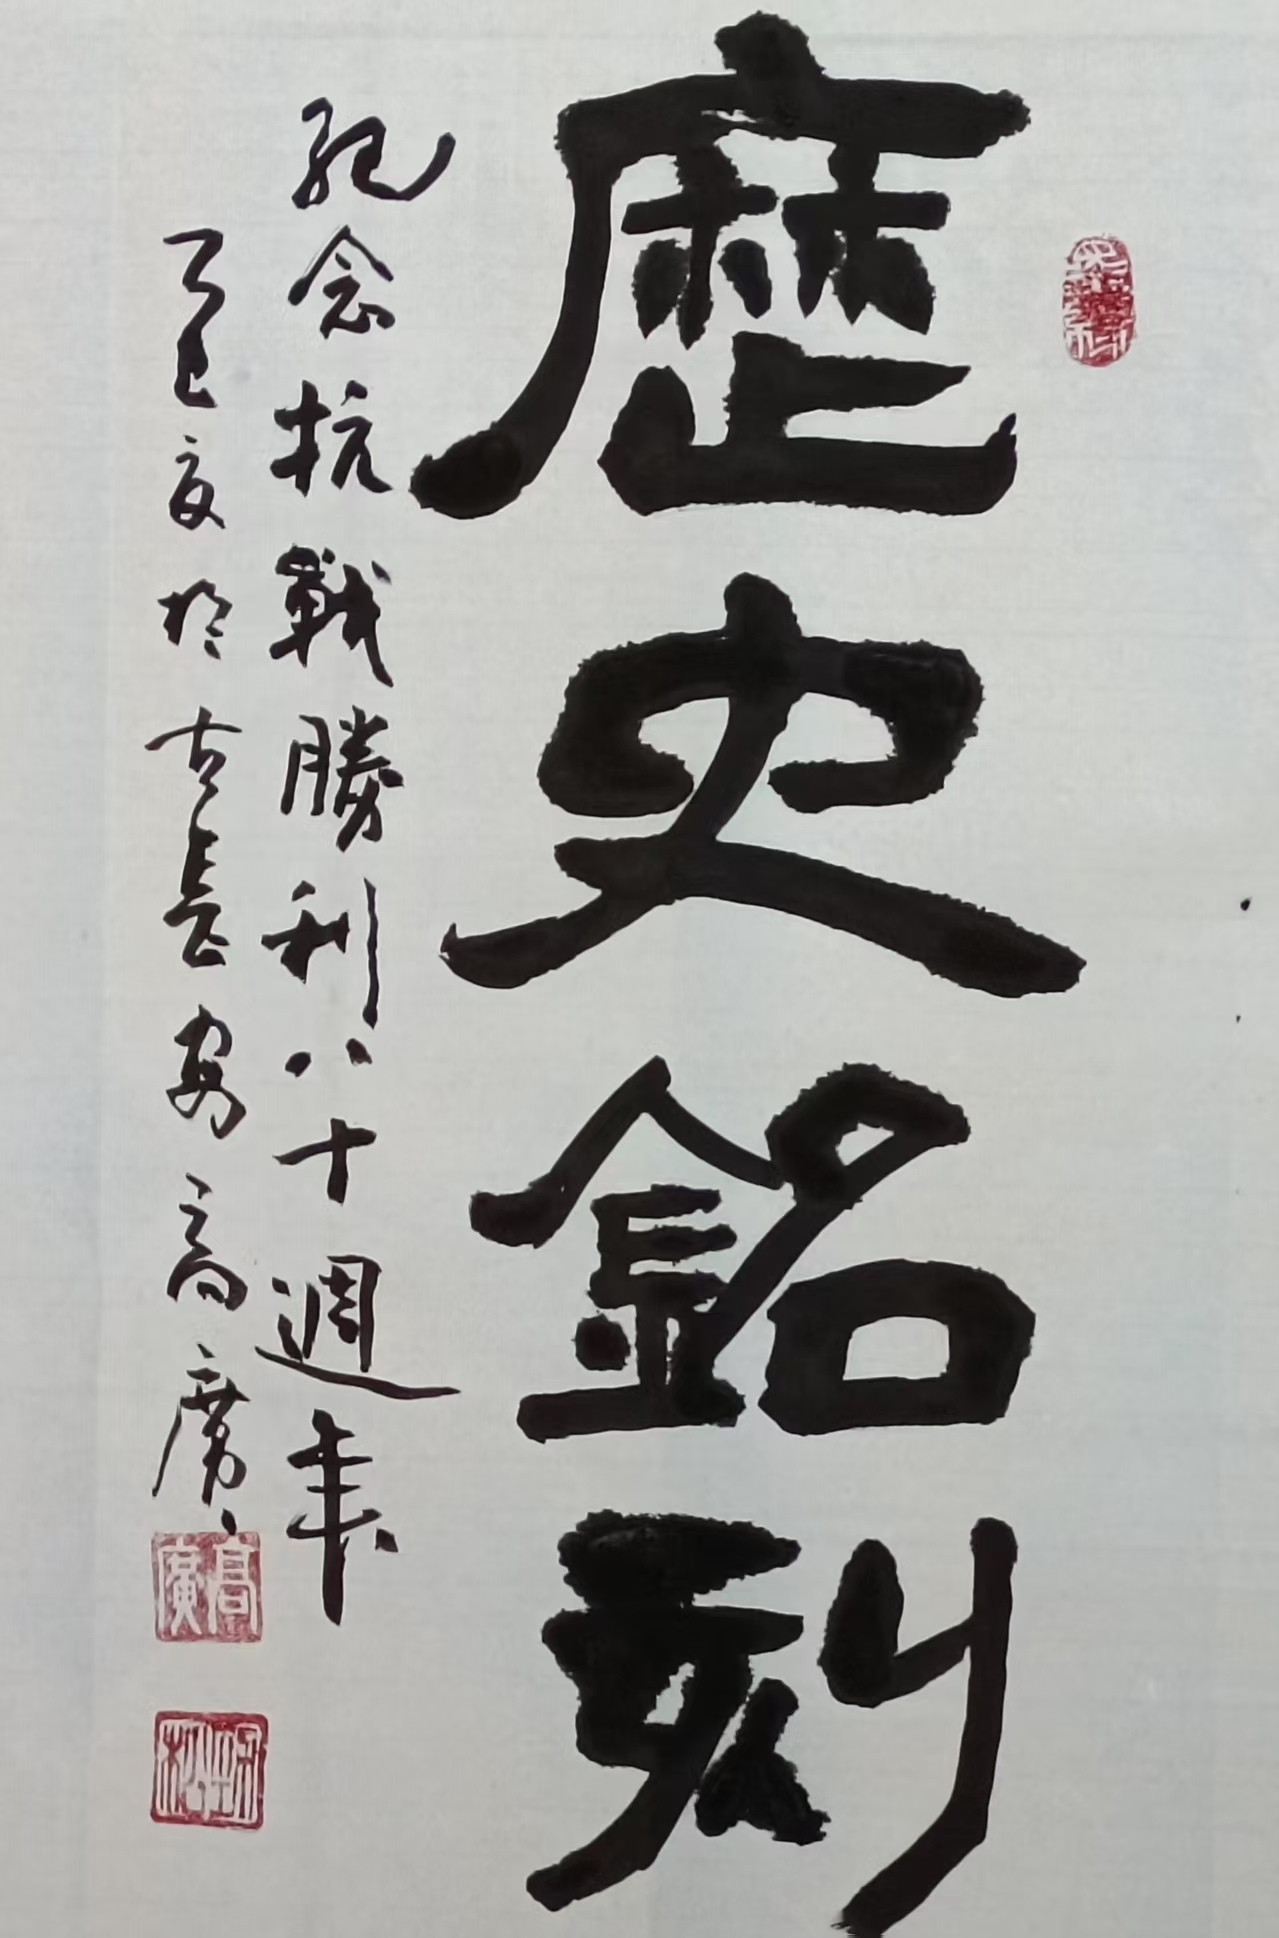 歷史銘刻
紀念抗戰勝利八十週年
乙巳夏於古長安高廣
高廣